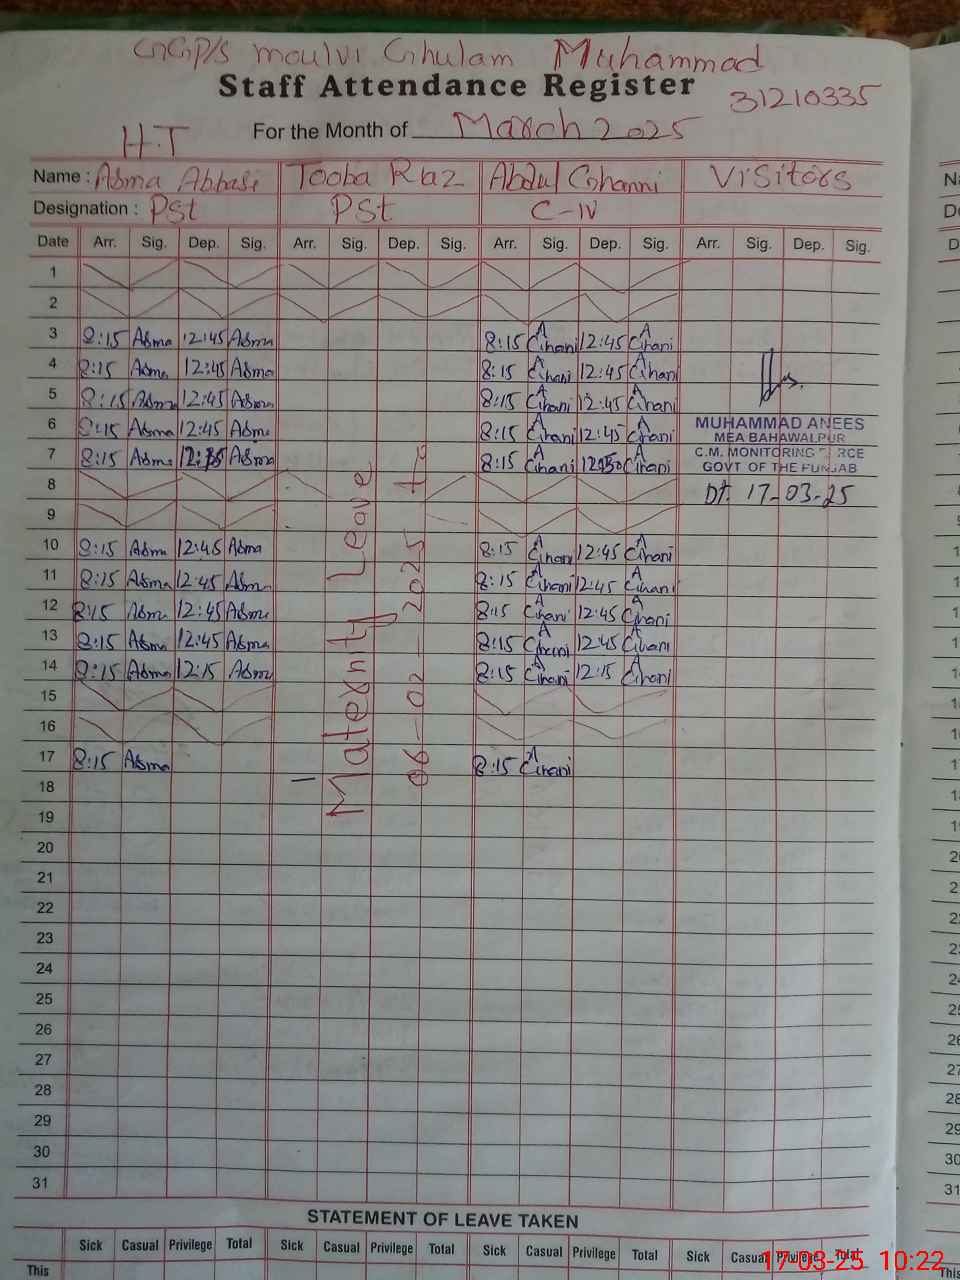 GGP/S moulvi Ghulam Muhammad
Staff Attendance Register
31210335
H.T
For the Month of March 2025
Name : Asma Abbasi Tooba Riaz Abdul Ghanni Visitors
Designation : PSt PSt C-IV
Date Arr. Sig. Dep. Sig. Arr. Sig. Dep. Sig. Arr. Sig. Dep. Sig. Arr. Sig. Dep. Sig.
1
2
3 8:15 Asma 12:45 Asma 8:15 A Ghani 12:45 A Ghani
4 8:15 Asma 12:45 Asma 8:15 A Ghani 12:45 A Ghani
5 8:15 Asma 12:45 Asma 8:15 A Ghani 12:45 A Ghani
6 8:15 Asma 12:45 Asma 8:15 A Ghani 12:45 A Ghani
MUHAMMAD ANEES
MEA BAHAWALPUR
7 8:15 Asma Asma 8:15 A Ghani A Ghani
C.M. MONITORING FORCE
GOVT OF THE PUNJAB
8
Dt. 17-03-25
9
Maternity Leave
06-02-2025 to
10 8:15 Asma 12:45 Asma 8:15 A Ghani 12:45 A Ghani
11 8:15 Asma 12:45 Asma 8:15 A Ghani 12:45 A Ghani
12 8:15 Asma 12:45 Asma 8:15 A Ghani 12:45 A Ghani
13 8:15 Asma 12:45 Asma 8:15 A Ghani 12:45 A Ghani
14 8:15 Asma 12:15 Asma 8:15 A Ghani 12:15 A Ghani
15
16
17 8:15 Asma 8:15 A Ghani
18
19
20
21
22
23
24
25
26
27
28
29
30
31
STATEMENT OF LEAVE TAKEN
Sick Casual Privilege Total Sick Casual Privilege Total Sick Casual Privilege Total Sick Casual Privilege Total
This
17-03-25 10:22